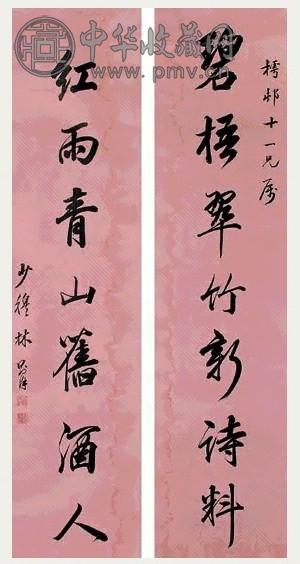 中华收藏网
www.pmv.cn
樗邨十一兄屬
碧梧翠竹新詩料
紅雨青山舊酒人
少穆林則徐